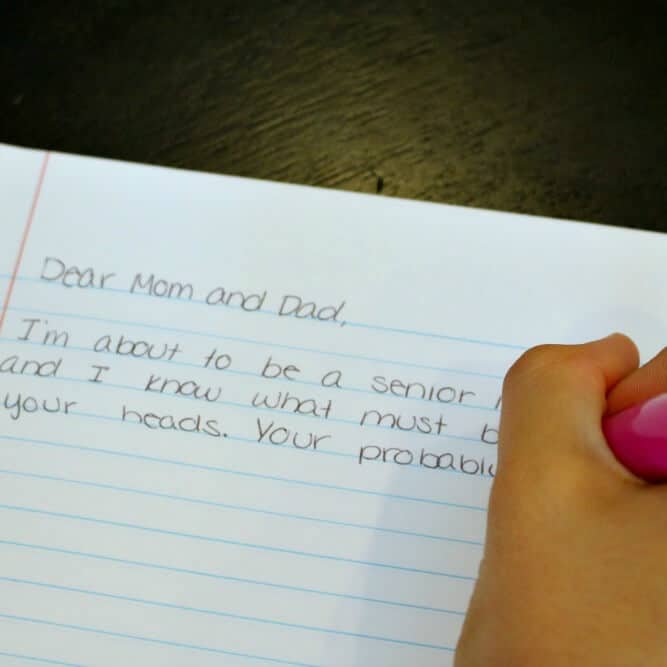 Dear Mom and Dad,
I'm about to be a senior
and I know what must
your heads. Your probably